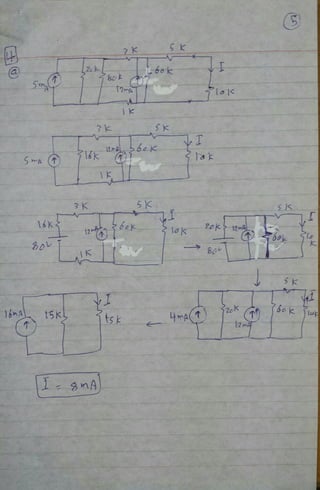 5
4
a
3K 5K
5mA 20k 80k 12mA 60k I 10K
1K
3K 5K
5mA 16K 12mA 60K I 10K
1K
3K 5K
16K 80V 12mA 60K I 10K
1K
5K
20K 80V 12mA 60K I 10K
5K
4mA 20K 12mA 60K I 10K
16mA 15K I 15K
I = 8mA